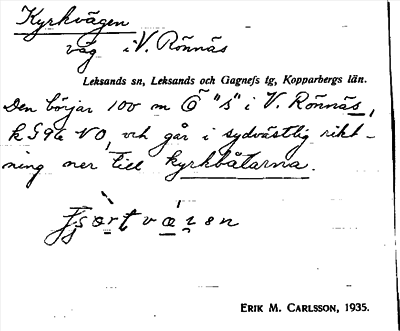 Kyrkvägen
väg i V. Rönnäs
Leksands sn, Leksands och Gagnefs tg, Kopparbergs län.
Den börjar 100 m Ö "s" i V. Rönnäs,
k 59a NO, och går i sydvästlig rikt-
ning ner till kyrkbåtarna.
ERIK M. CARLSSON, 1935.